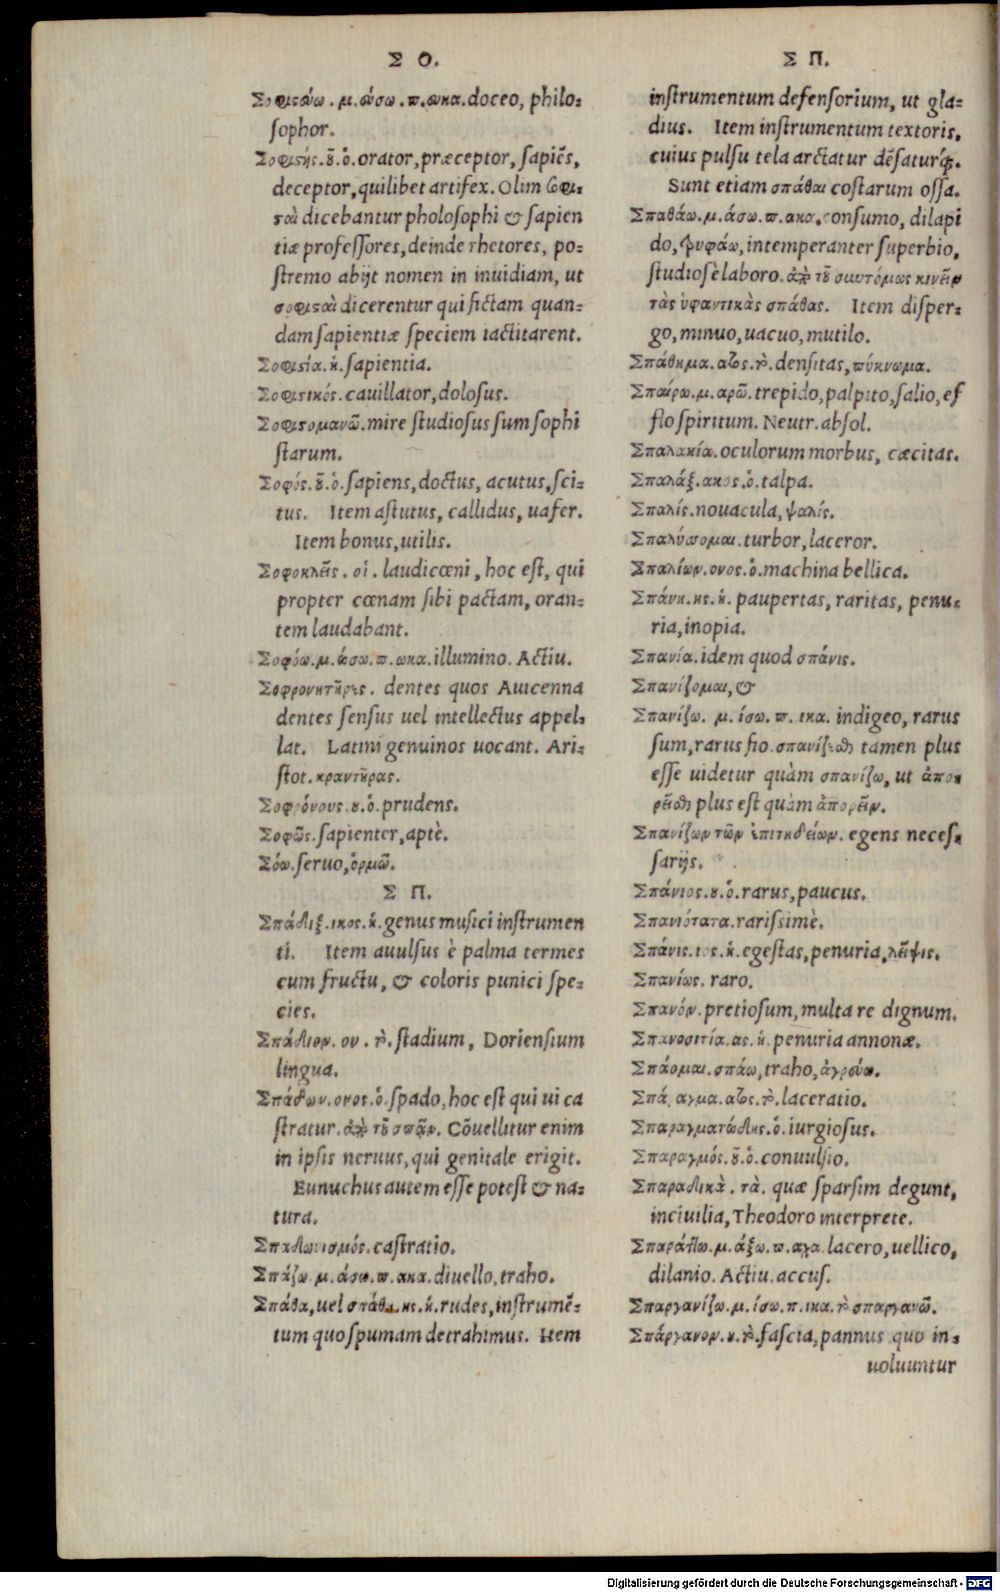 Σ Ο.
Σοφιστεύω. μ. εύσω. π. ευκα. doceo, philo-
sophor.
Σοφιστής. οῦ. ὁ. orator, præceptor, sapiẽs,
deceptor, quilibet artifex. Olim σοφι-
σταὶ dicebantur pholosophi & sapien
tiæ professores, deinde rhetores, po-
stremo abijt nomen in inuidiam, ut
σοφισταὶ dicerentur qui fictam quan-
dam sapientiæ speciem iactitarent.
Σοφιστία. ἡ. sapientia.
Σοφιστικός. cauillator, dolosus.
Σοφιστομανῶ. mire studiosus sum sophi
starum.
Σοφός. οῦ. ὁ. sapiens, doctus, acutus, sci-
tus. Item astutus, callidus, uafer.
Item bonus, utilis.
Σοφοκλεῖς. οἱ. laudicœni, hoc est, qui
propter cœnam sibi pactam, oran-
tem laudabant.
Σοφόω. μ. ώσω. π. ωκα. illumino. Actiu.
Σοφρονητῆρες. dentes quos Auicenna
dentes sensus uel intellectus appel-
lat. Latini genuinos uocant. Ari-
stot. κραντῆρας.
Σοφρόνους. ου. ὁ. prudens.
Σοφῶς. sapienter, aptè.
Σόω. seruo, ὁρμῶ.
Σ Π.
Σπάδιξ. ικος. ἡ. genus musici instrumen
ti. Item auulsus è palma termes
cum fructu, & coloris punici spe-
cies.
Σπάδιον. ου. τὸ. stadium, Doriensium
lingua.
Σπάδων. ονος. ὁ. spado, hoc est qui ui ca
stratur. ἀπὸ τοῦ σπᾷν. Cõuellitur enim
in ipsis neruus, qui genitale erigit.
Eunuchus autem esse potest & na-
tura.
Σπαδωνισμός. castratio.
Σπάζω. μ. άσω. π. ακα. diuello, traho.
Σπάθα, uel σπάθη. ης. ἡ. rudes, instrumẽ-
tum quo spumam detrahimus. Item
Σ Π.
instrumentum defensorium, ut gla-
dius. Item instrumentum textoris,
cuius pulsu tela arctatur dẽsaturq́;.
Sunt etiam σπάθαι costarum ossa.
Σπαθάω. μ. άσω. π. ακα. consumo, dilapi
do, τρυφάω, intemperanter superbio,
studiosè laboro. ἀπὸ τοῦ συντόμως κινεῖν
τὰς ὑφαντικὰς σπάθας. Item disper-
go, minuo, uacuo, mutilo.
Σπάθημα. ατος. τὸ. densitas, πύκνωμα.
Σπαίρω. μ. αρῶ. trepido, palpito, salio, ef
flo spiritum. Neutr. absol.
Σπαλακία. oculorum morbus, cæcitas.
Σπαλάξ. ακος. ὁ. talpa.
Σπαλίς. nouacula, ψαλίς.
Σπαλύσσομαι. turbor, laceror.
Σπαλίων. ονος. ὁ. machina bellica.
Σπάνη. ης. ἡ. paupertas, raritas, penu-
ria, inopia.
Σπανία. idem quod σπάνις.
Σπανίζομαι, &
Σπανίζω. μ. ίσω. π. ικα. indigeo, rarus
sum, rarus fio. σπανίζεσθαι tamen plus
esse uidetur quàm σπανίζω, ut ἀπο-
ρεῖσθαι plus est quàm ἀπορεῖν.
Σπανίζων τῶν ἐπιτηδείων. egens neces-
sarijs.
Σπάνιος. ου. ὁ. rarus, paucus.
Σπανιότατα. rarissimè.
Σπάνις. ιος. ἡ. egestas, penuria, λεῖψις.
Σπανίως. raro.
Σπανόν. pretiosum, multa re dignum.
Σπανοσιτία. ας. ἡ. penuria annonæ.
Σπάομαι. σπάω, traho, ἀγρεύω.
Σπάραγμα. ατος. τὸ. laceratio.
Σπαραγματώδης. ὁ. iurgiosus.
Σπαραγμός. οῦ. ὁ. conuulsio.
Σπαραδικὰ. τὰ. quæ sparsim degunt,
inciuilia, Theodoro interprete.
Σπαράττω. μ. άξω. π. αχα. lacero, uellico,
dilanio. Actiu. accus.
Σπαργανίζω. μ. ίσω. π. ικα. τὸ σπαργανῶ.
Σπάργανον. ου. τὸ. fascia, pannus quo in-
uoluuntur
Digitalisierung gefördert durch die Deutsche Forschungsgemeinschaft - DFG